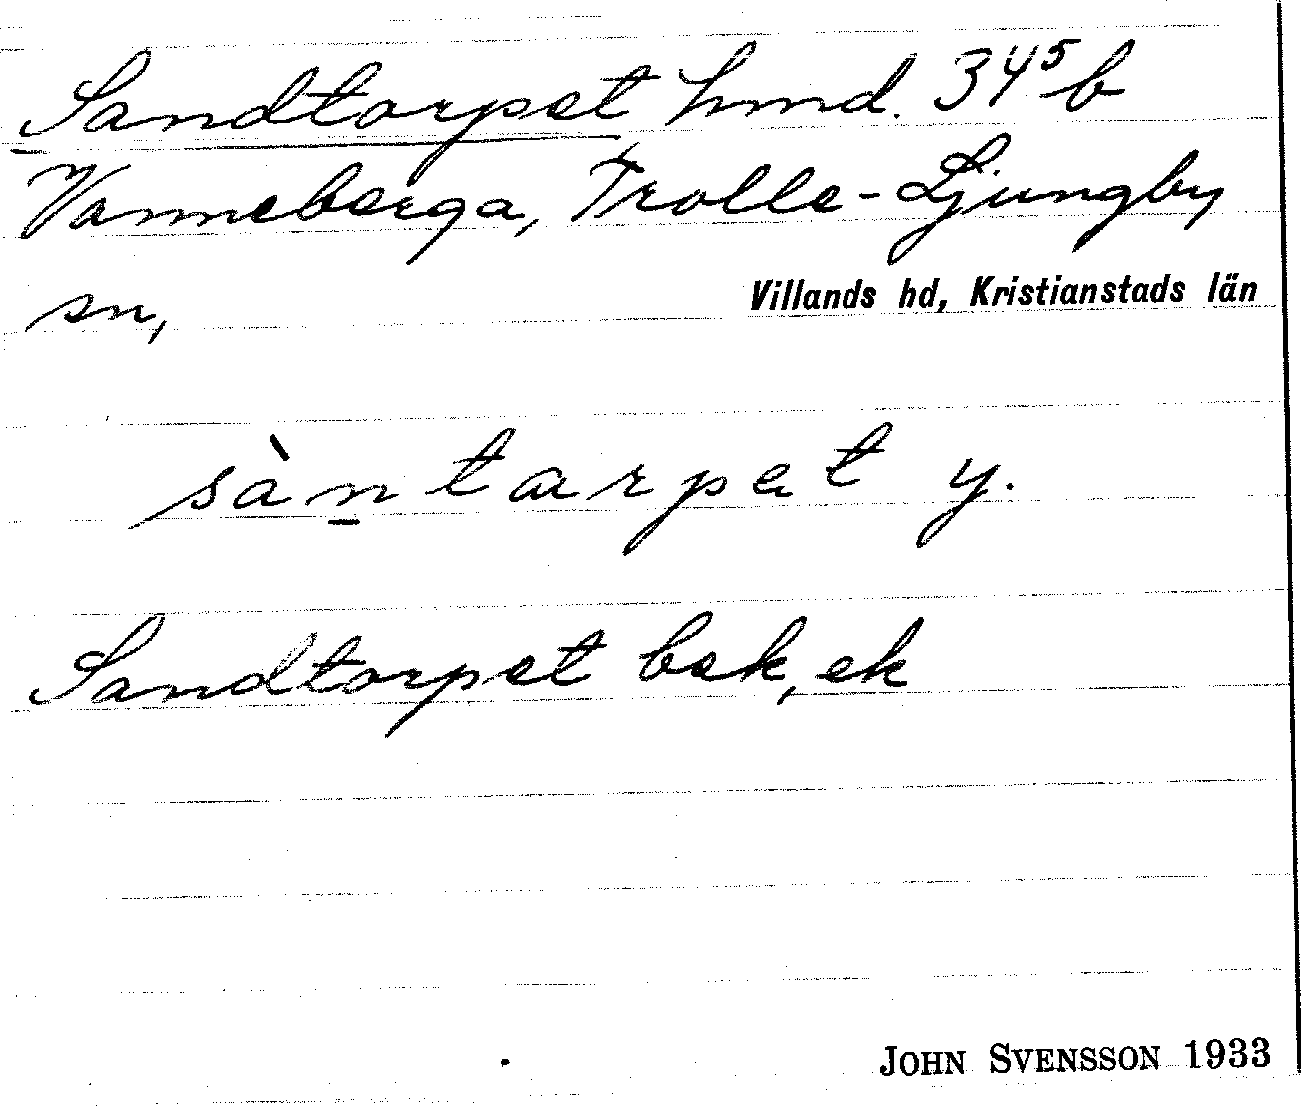 Sandtorpet hmd. 34⁵b
Vanneberga, Trolle-Ljungby
sn, Villands hd, Kristianstads län
sàn̲tarpet y.
Sandtorpet bek, ek
JOHN SVENSSON 1933